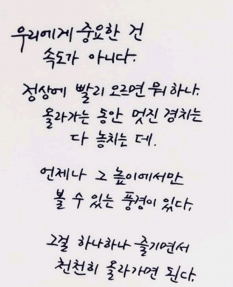 우리에게 중요한 건
속도가 아니다.
정상에 빨리 오르면 뭐 하나.
올라가는 동안 멋진 경치는
다 놓치는 데.
언제나 그 높이에서만
볼 수 있는 풍경이 있다.
그걸 하나하나 즐기면서
천천히 올라가면 된다.